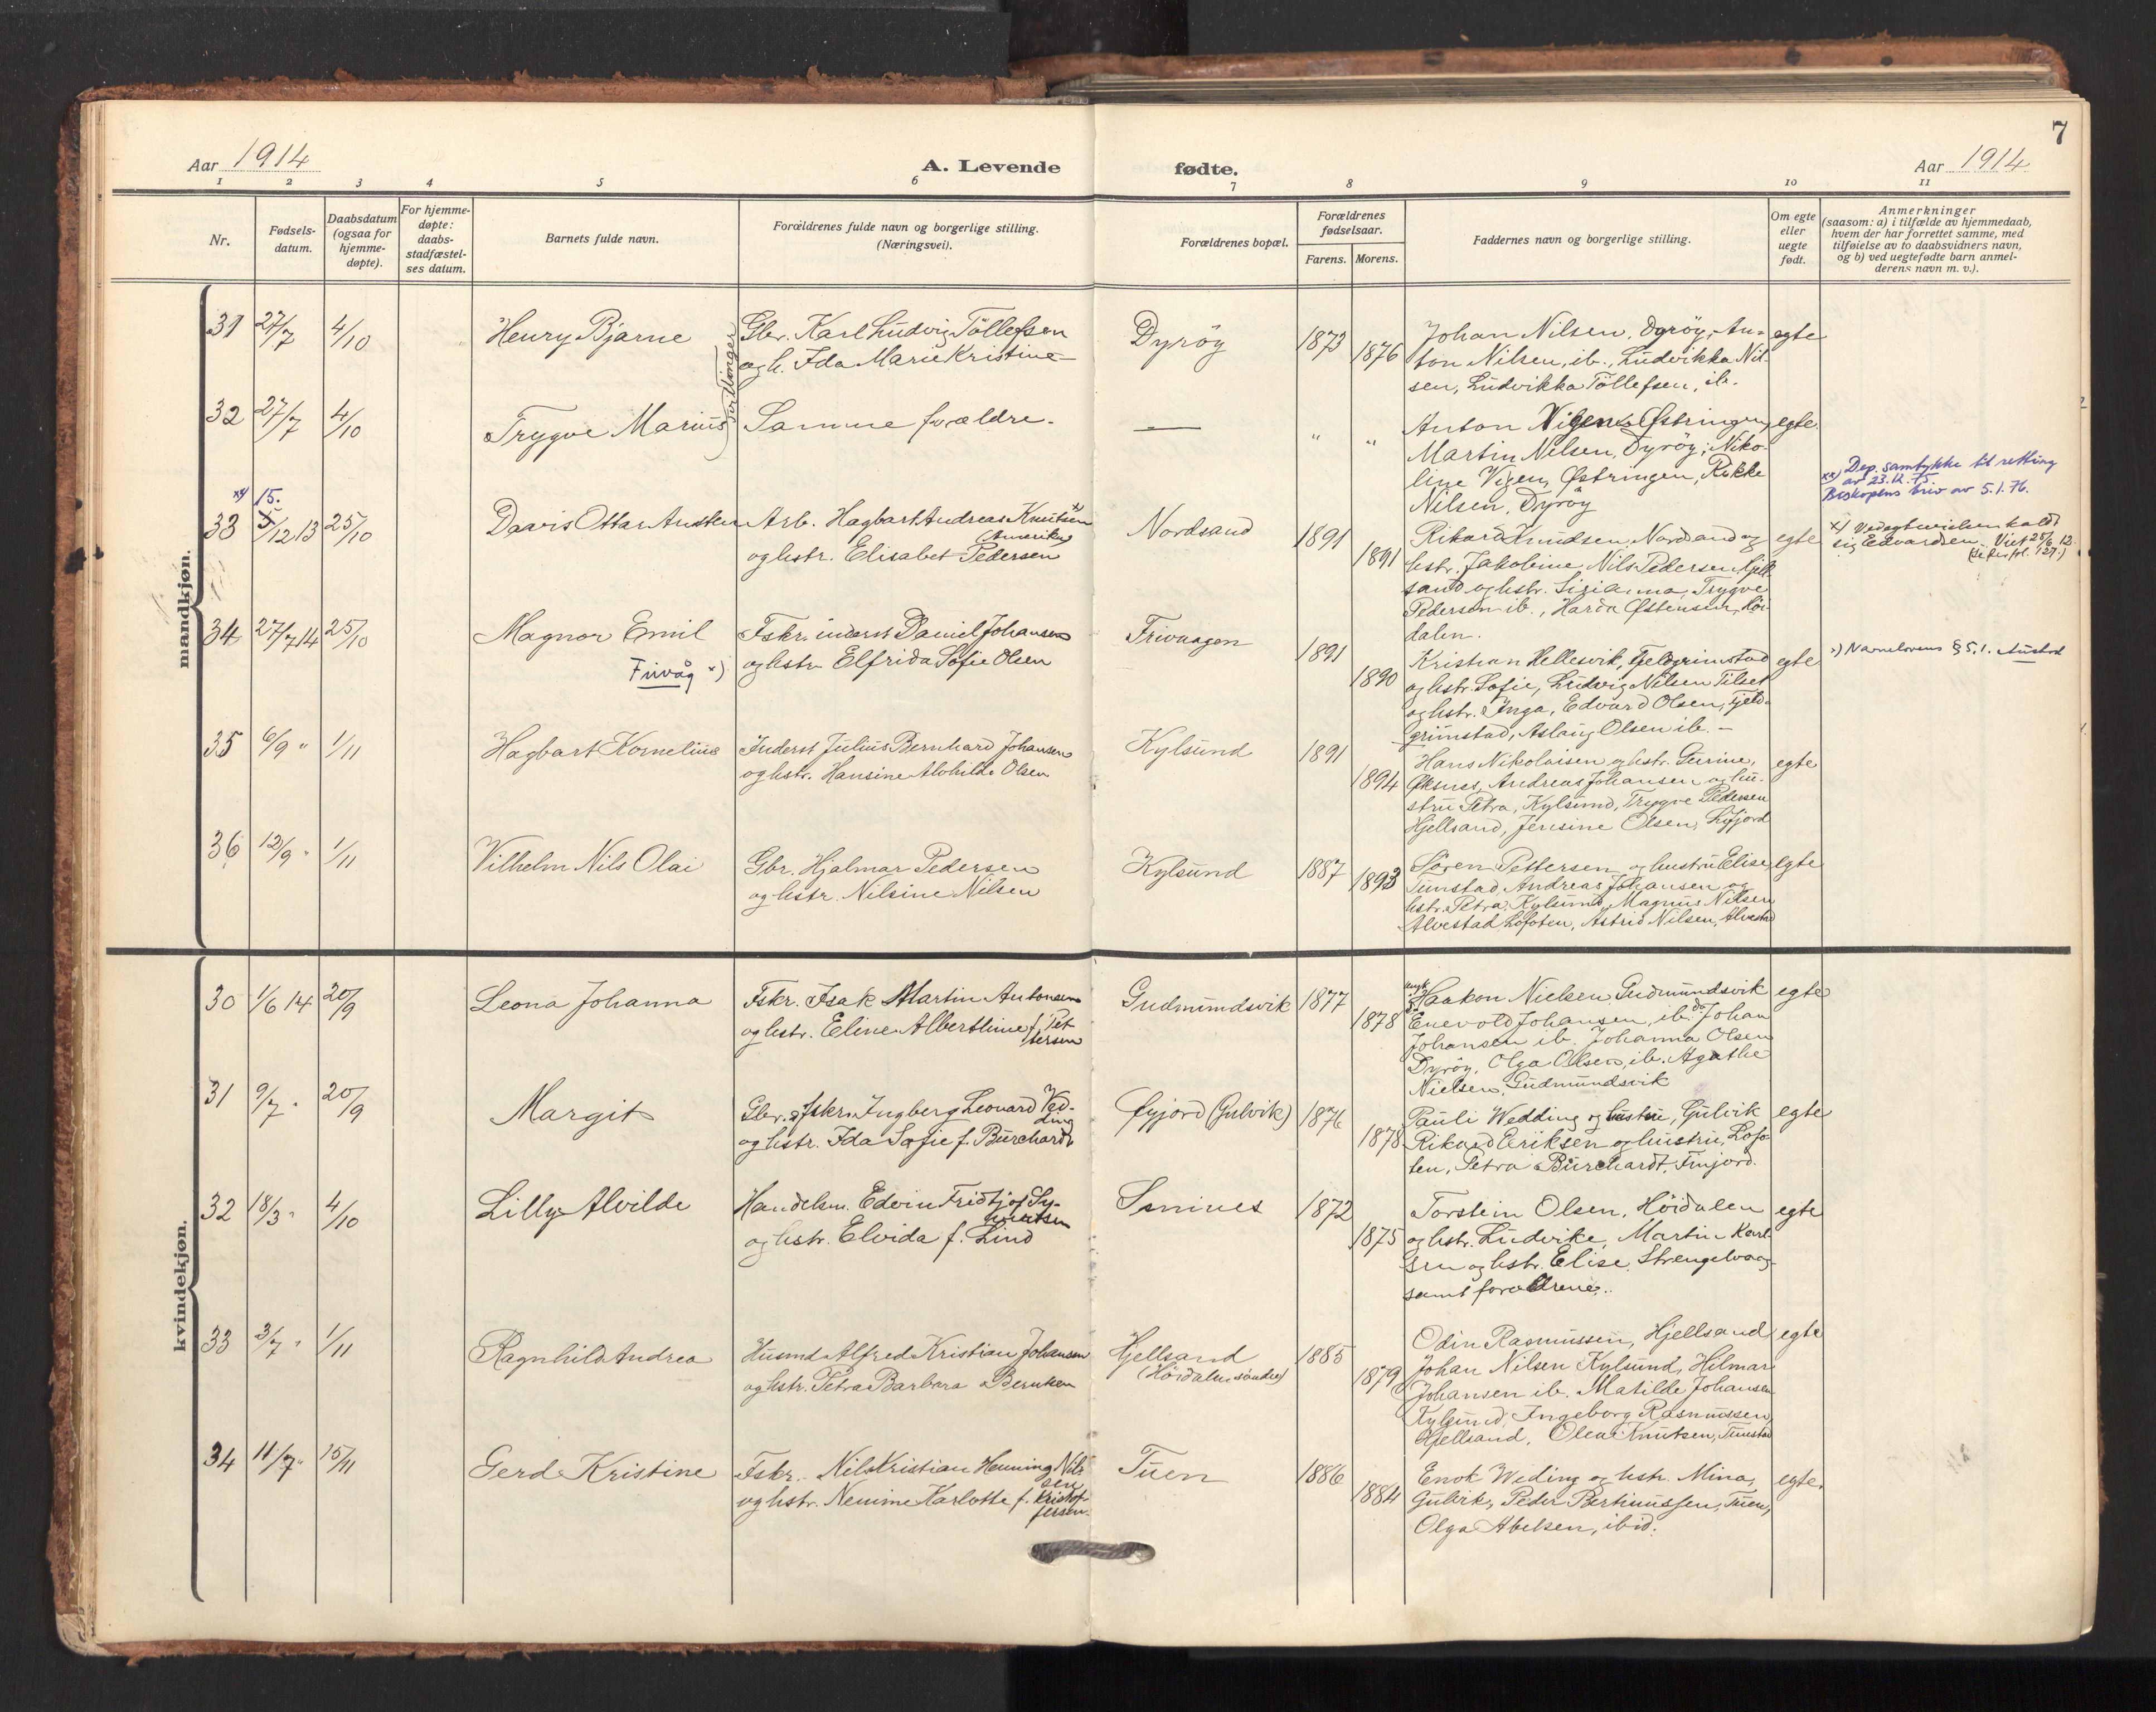 7
Aar 1914
A. Levende
fødte.
Aar 1914
1 2 3 4 5 6 7 8 9 10 11
Nr.
Fødsels-
datum.
Daabsdatum
(ogsaa for
hjemme-
døpte).
For hjemme-
døpte:
daabs-
stadfæstel-
ses datum.
Barnets fulde navn.
Forældrenes fulde navn og borgerlige stilling.
(Næringsvei).
Forældrenes bopæl.
Forældrenes
fødselsaar.
Farens. Morens.
Faddernes navn og borgerlige stilling.
Om egte
eller
uegte
født.
Anmerkninger
(saasom: a) i tilfælde av hjemmedaab,
hvem der har forrettet samme, med
tilføielse av to daabsvidners navn,
og b) ved uegtefødte barn anmel-
derens navn m. v.).
mandkjøn.
31 27/7 4/10 Henry Bjarne
tvillinger
Gbr. Karl Ludvig Töllefsen
og h. Ida Marie Kristine
Dyröy 1873 1876
Johan Nilsen, Dyröy, An-
ton Nilsen, ib., Ludvikka Nil-
sen, Ludvikka Töllefsen, ib.
egte
32 27/7 4/10 Trygve Marius
Samme forældre.
— " "
Anton Vigen, Østringen,
Martin Nilsen, Dyröy, Niko-
line Vigen, Østringen, Rikke
Nilsen, Dyröy
egte.
xx) Dep. samtykke til retting
av 23.12.75
Biskopens briv av 5.1.76.
xx) 15.
33 5/12 13 25/10 Davis Ottar Austen
Arb. Hagbart Andreas Knutsen x)
(Amerika)
og hstr. Elisabet Pedersen
Nordsand 1891 1891
Rikard Knudsen, Nordsand og
hstr. Jakobine, Nils Pedersen, Hjell-
sand og hstr. Trygve
Pedersen ib., Östensen, Höi-
dalen.
egte
x) Ved kaldt
sig Edvardsen. Viet 25/6 12
(se fol. 127.)
34 27/7 14 25/10 Magnor Emil
Frivåg x)
Fskr. inderst Daniel Johansen
og hstr. Elfrida Sofie Olsen
Frivaagen 1891 1890
Kristian Hellesvik, Fjeldgrimstad
og hstr. Sofie, Ludvig Nilsen Tilset
og hstr. Inga, Edvard Olsen, Fjeld-
grimstad, Aslaug Olsen ib. –
egte
x) Navnelovens § 5, 1.
35 6/9 " 1/11 Hagbart Kornelius
Inderst Julius Bernhard Johansen
og hstr. Hansine Alvhilde Olsen
Kylsund 1891 1894
Hans Nikolaisen og hstr. Gurine,
Øksnes, Andreas Johansen og hu-
stru Petra, Kylsund, Trygve Pedersen
Hjellsand, Jensine Olsen, Lifjord
egte
36 12/9 " 1/11 Vilhelm Nils Olai
Gbr. Hjalmar Pedersen
og hstr. Nilsine Nilsen
Kylsund 1887 1893
Sören Pettersen og hustru Elise,
Tunstad, Andreas Johansen og
hstr. Petra, Kylsund, Magnus Nilsen
Alvestad Lofoten, Astrid Nilsen, Alvestad
egte
kvindekjøn.
30 1/6 14 20/9 Leona Johanna
Fskr. Isak Martin Antonsen
og hstr. Eline Albertine f. Pet-
tersen
Gudmundsvik 1877 1878
Haakon Nielsen Gudmundsvik
Enevold Johansen, ib. Johan
Johansen ib. Johanna Olsen
Dyröy, Olga Olsen ib. Agathe
Nielsen, Gudmundsvik
egte
31 9/7 " 20/9 Margit
Gbr. og fskr. Ingberg Leonard Wed-
ding
og hstr. Ida Sofie f. Burchardt
Øyjord (Gulvik) 1876 1878
Pauli Wedding og hustru, Gulvik
Rikard Eriksen og hustru, Lofo-
ten, Petra Burchardt, Finjord.
egte
32 18/3 " 4/10 Lilly Alvilde
Handelsm. Edvin Fridtjof Sy-
vertsen
og hstr. Elvida f. Lind
Smines 1872 1875
Torstein Olsen, Höidalen
og hstr. Ludvike, Martin Karl-
sen og hstr. Elise, Strengelvaag
samt forældrene.
egte
33 3/7 " 1/11 Ragnhild Andrea
Husmd. Alfred Kristian Johansen
og hstr. Petra Barbara Berntsen
Hjellsand
(Höidalen söndre)
1885 1879
Odin Rasmussen, Hjellsand
Johan Nilsen Kylsund, Hilmar
Johansen ib. Matilde Johansen
Kylsund, Ingeborg Rasmussen,
Hjellsand, Olea Knutsen, Tunstad
egte
34 11/7 " 15/11 Gerd Kristine
Fskr. Nils Kristian Henning Nil-
sen
og hstr. Nennine Karlotte f. Kristof-
fersen.
Tuen 1886 1884
Enok Weding og hstr. Mina,
Gulvik, Peder Bertinussen, Tuen,
Olga Abelsen, ibid.
egte.